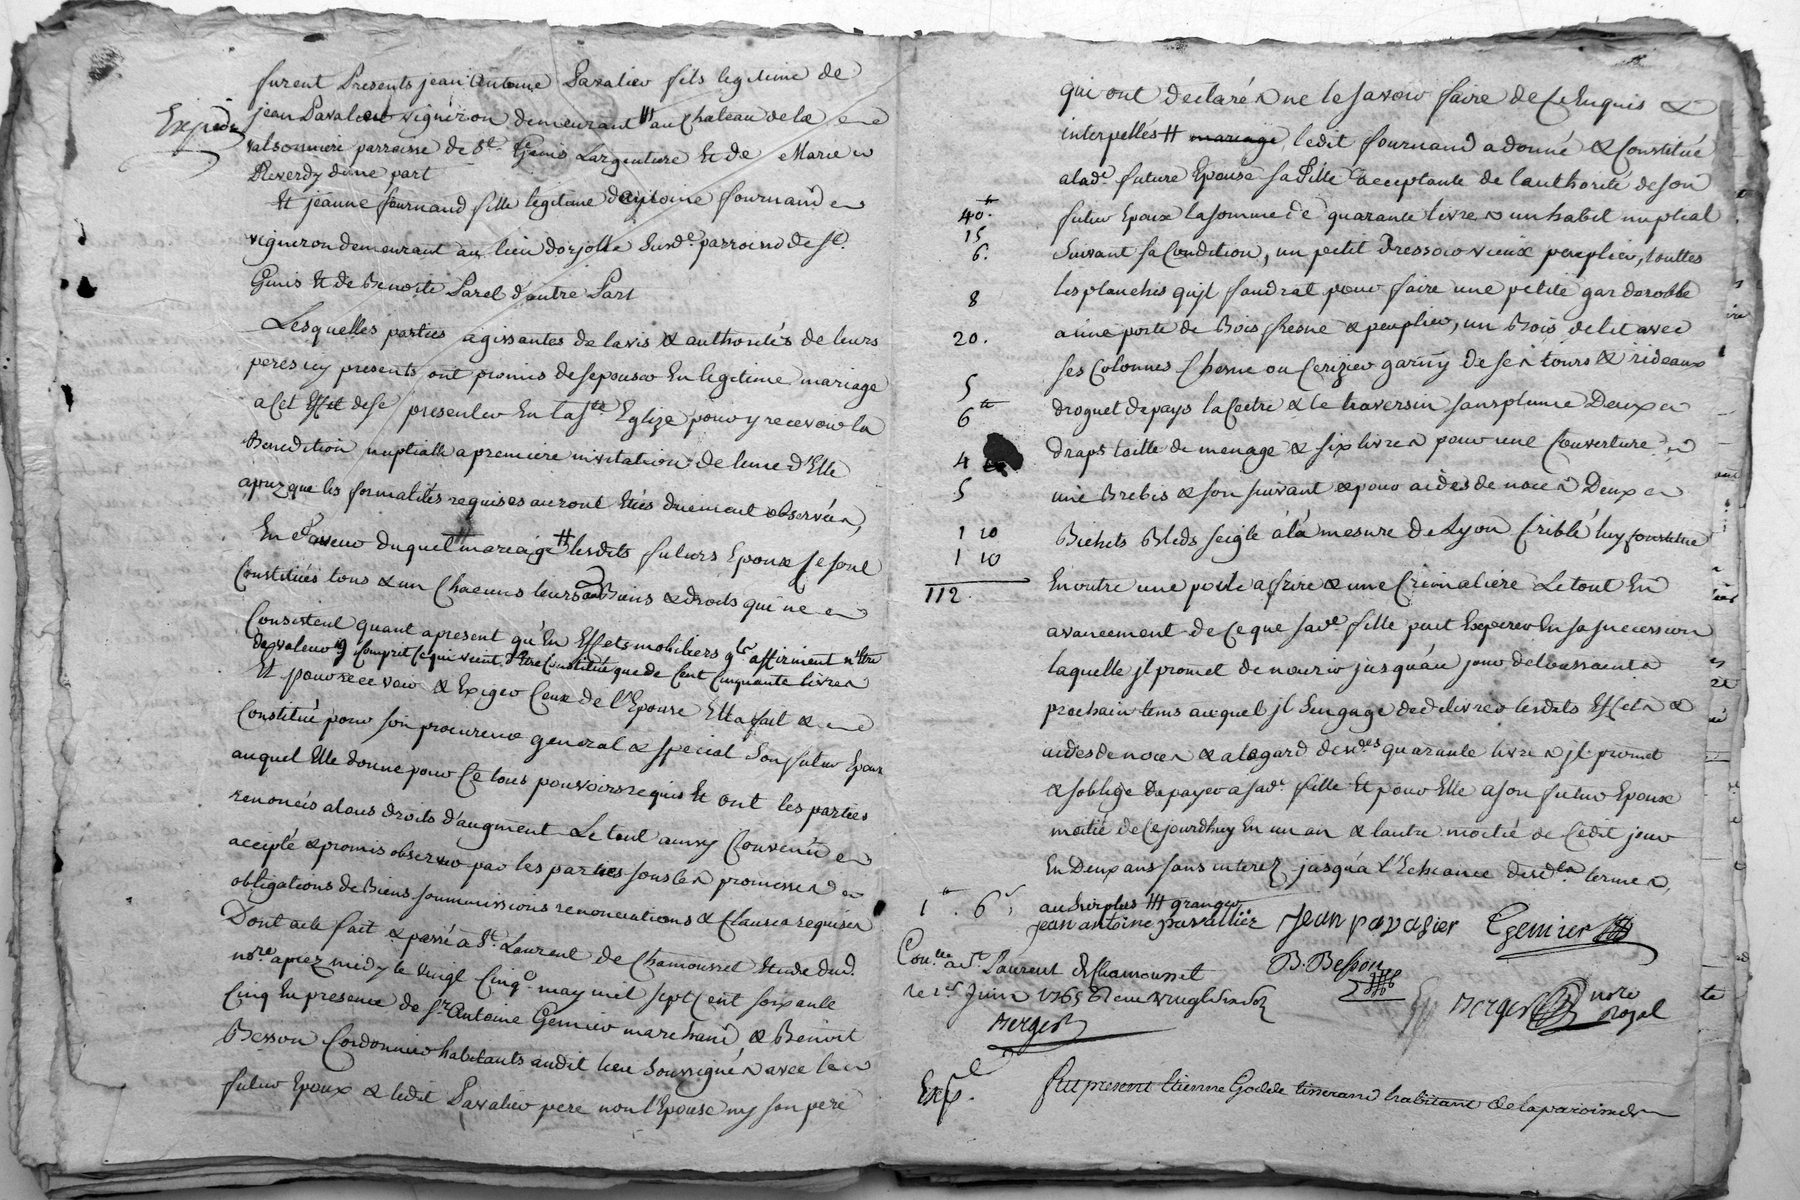 furent Presents jean Antoine Pavalier fils legitime de
Expédié
jean Pavalier vigneron demeurant au Chateau de la
valsonniere parroisse de St. Genis Largentiere Et de Marie
Reverdy d'une part
Et jeanne fournand fille legitime d'antoine fournand
vigneron demeurant au lieu dorjolle susde. parroisse de St.
Genis Et de Benoite Parel d'autre Part
Lesquelles parties agissantes de lavis & authorités de leurs
peres icy presents ont promis de sepouser En legitime mariage
a Cet Effet de se presenter En la Ste Eglize pour y recevoir la
Benediction nuptialle a premiere invitation de lune d'Elle
aprez que les formalités requises auront Etées duement observées,
En faveur duquel mariage # lesdits futurs Epoux se sont
Constitués tous & un Chacuns leurs Biens & droits qui ne
Consistent quant apresent qu'En Effets mobiliers qls. affirment n'Etre
de valeur y Compris Ce qui vient d'Etre Constitué que de Cent Cinquante livres
Et pour recevoir & Exiger Ceux de l'Epouse Elle a fait &
Constitué pour son procureur general & special son futur Epoux
auquel Elle donne pour Ce tous pouvoirs requis Et ont les parties
renoncés a tous droits d'augment Le tout ainsy Convenu
accepté & promis observer par les parties sous les promesses
obligations de Biens soummissions renonciations & Clauses requises
Dont acte fait & passé a St. Laurent de Chamousset Etude dud.
nore. aprez midy le vingt Cinq may mil sept Cent soixante
Cinq En presence de sr. Antoine Genier marchand & Benoit
Besson Cordonnier habitants audit lieu soussignés avec les
futur Epoux & ledit Pavalier pere non l'Epouse ny son pere
qui ont declaré ne le savoir faire de Ce Enquis &
interpellés # mariage, ledit fournand a donné & Constitué
a lade. future Epouse sa fille acceptante de lauthorité de son
40.tt futur Epoux la somme de quarante livres un habit nuptial
15
6. suivant sa Condition, un petit Dressoir vieux peuplier, touttes
8 les planches qu'jl faudrat pour faire une petite garderobbe
20. a une porte de Bois fresne & peuplier, un Bois de lit avec
ses Colonnes Chesne ou Cerizier garny de ses tours & rideaux
5 droguet de pays la Coitre & le traversin sans plume Deux
6tt draps toille de menage & six livres pour une Couverture
4
5 une Brebis & son suivant & pour aides de noces Deux
1 10 Bichets Bleds seigle à la mesure de Lyon Criblé luy Constitue
1 10
112. En outre une poile a frire & une Cremaliere Le tout En
avancement de Ce que sade. fille peut Esperer En sa succession
laquelle jl promet de nourir jusqu'au jour de toussaints
prochain tems auquel jl s'engage de delivrer lesdits Effets &
aides de noces & a legard desdes quarante livres jl promet
& soblige de payer a sade. fille Et pour Elle a son futur Epoux
moitié de Ce jourdhuy En un an & lautre moitié de Cedit jour
En Deux ans sans interez jusqu'a l'Echeance desdts. termes,
1tt. 6s. au surplus granger
jean antoine pavallier jean pavalier Genier
Con.lle a St. Laurent de Chamousset B. Besson
le 1er. Juin 1765
Berger Berger nore royal
Exp. fut present Etienne Godde tisserand habitant de la paroisse de